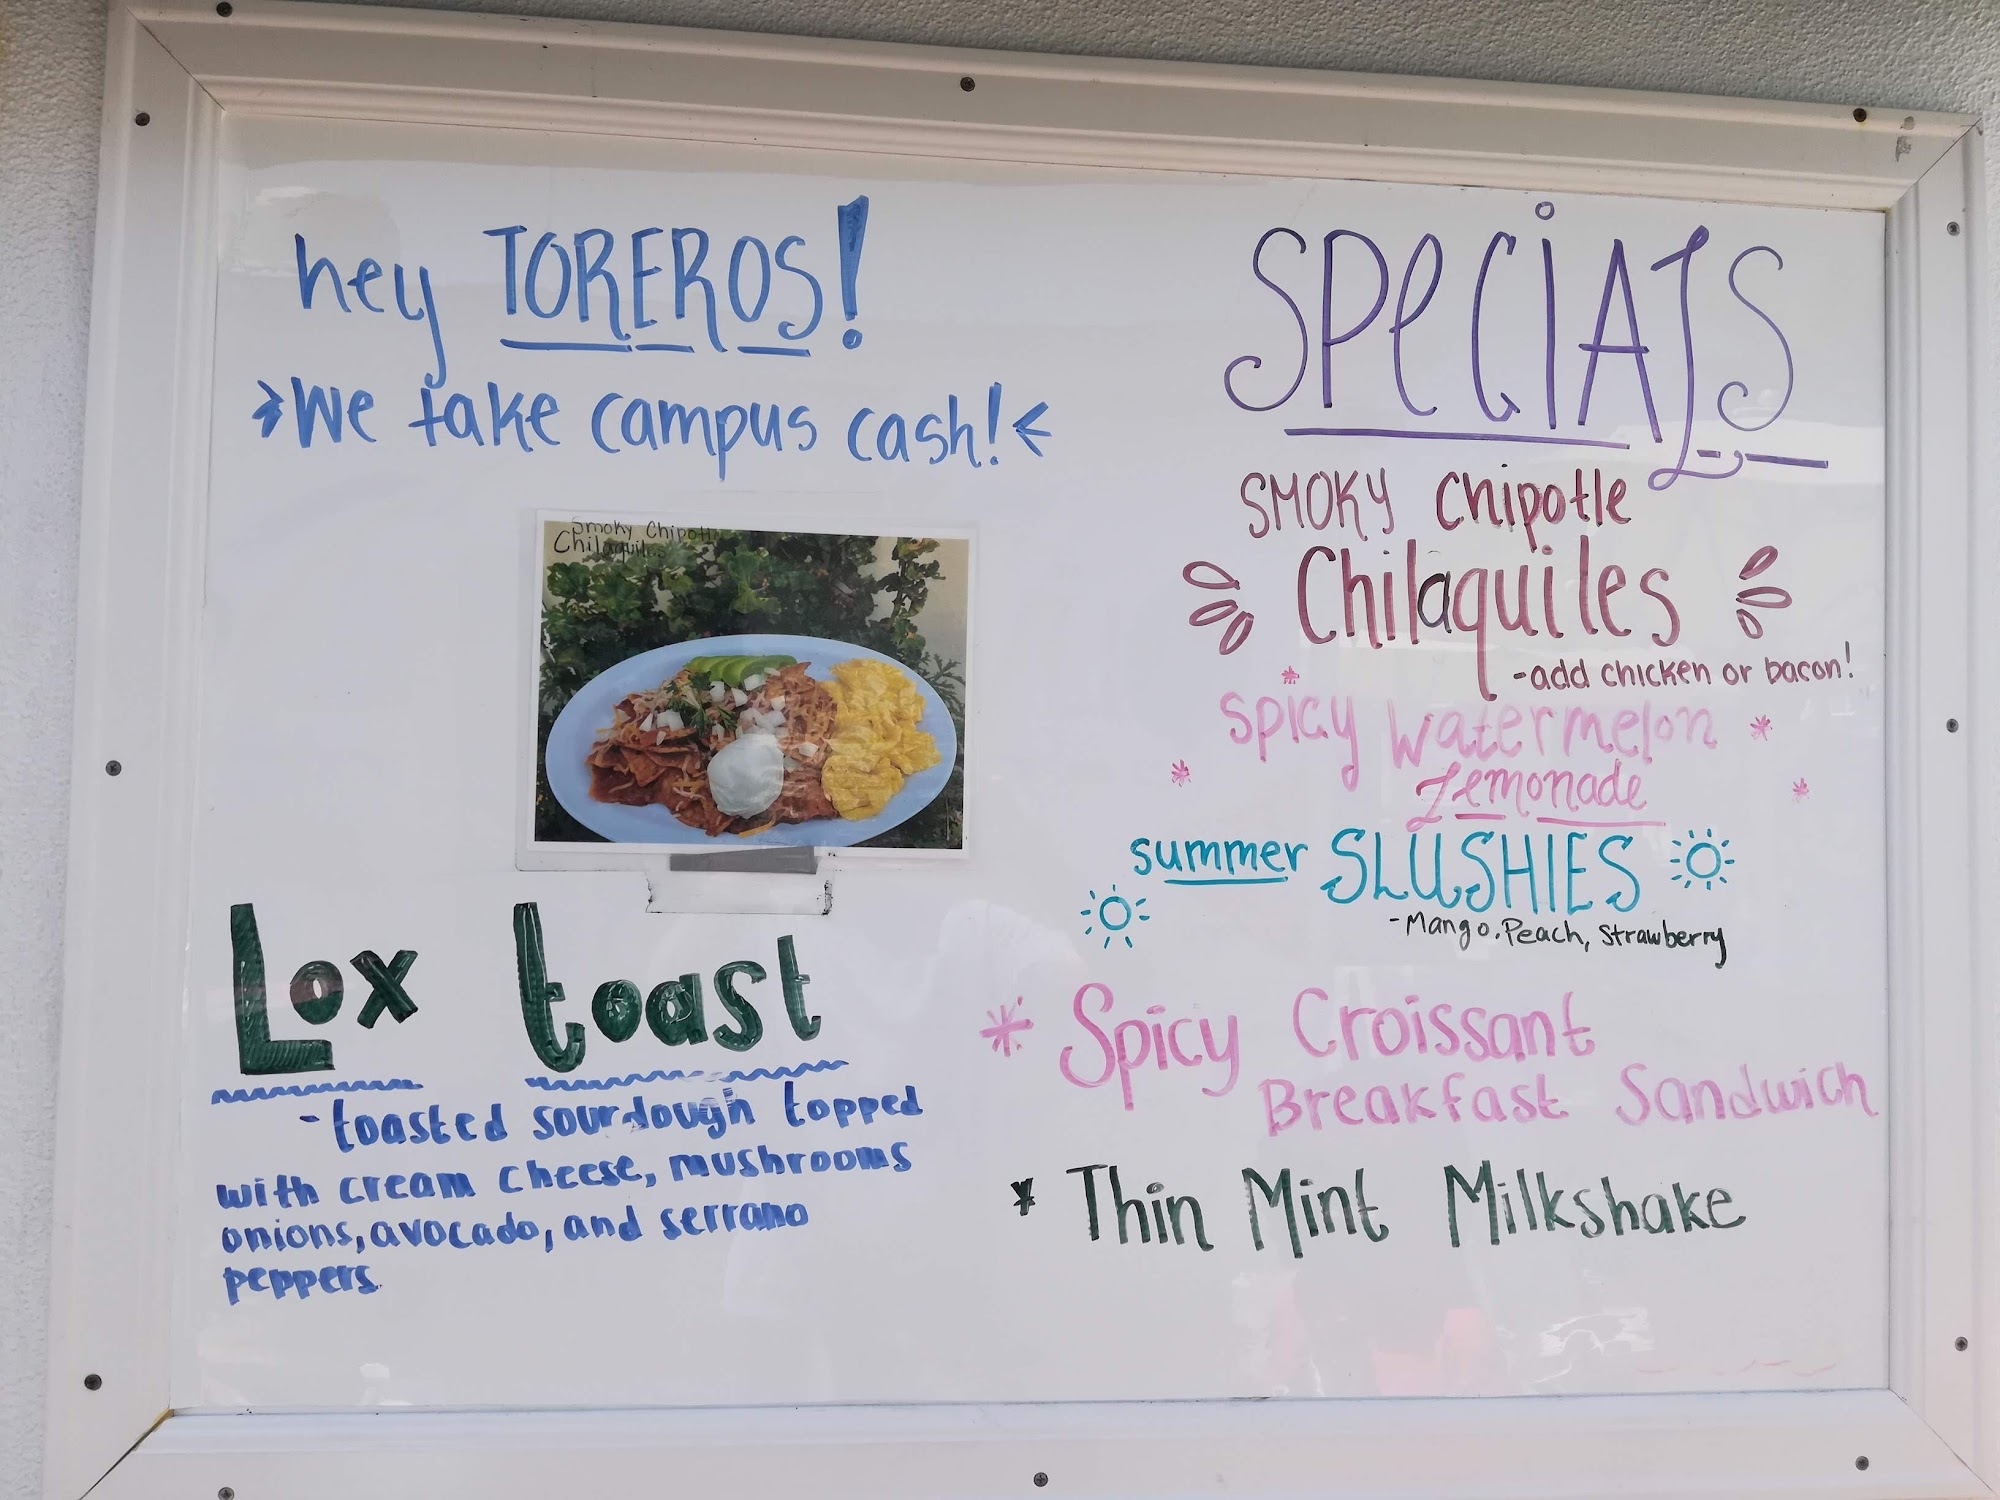 hey TOREROS!
>We take campus cash!<
Smoky Chipotl
Chilaquil
Lox toast
-toasted sourdough topped
with cream cheese, mushrooms
onions, avocado, and serrano
peppers
SPeCiALS
SMOKY Chipotle
Chilaquiles
-add chicken or bacon!
Spicy Watermelon
Lemonade
summer SLUSHIES
-Mango, Peach, Strawberry
* Spicy Croissant
Breakfast Sandwich
* Thin Mint Milkshake